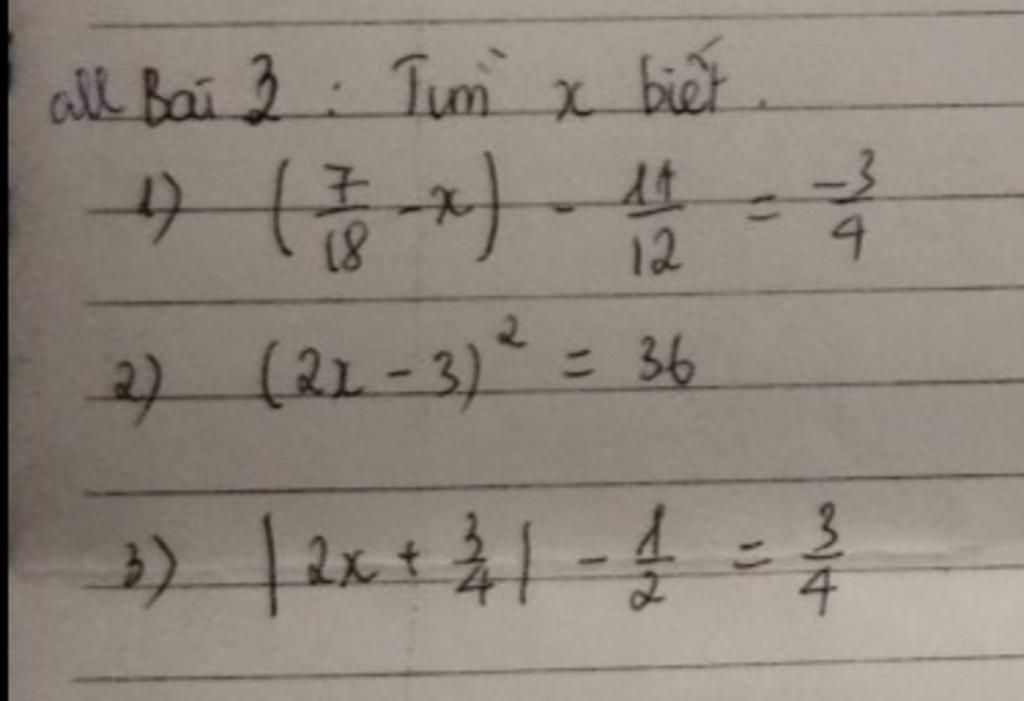 all Bài 3 : Tìm x biết.
1) (7/18 - x) - 11/12 = -3/4
2) (2x - 3)² = 36
3) |2x + 3/4| - 1/2 = 3/4